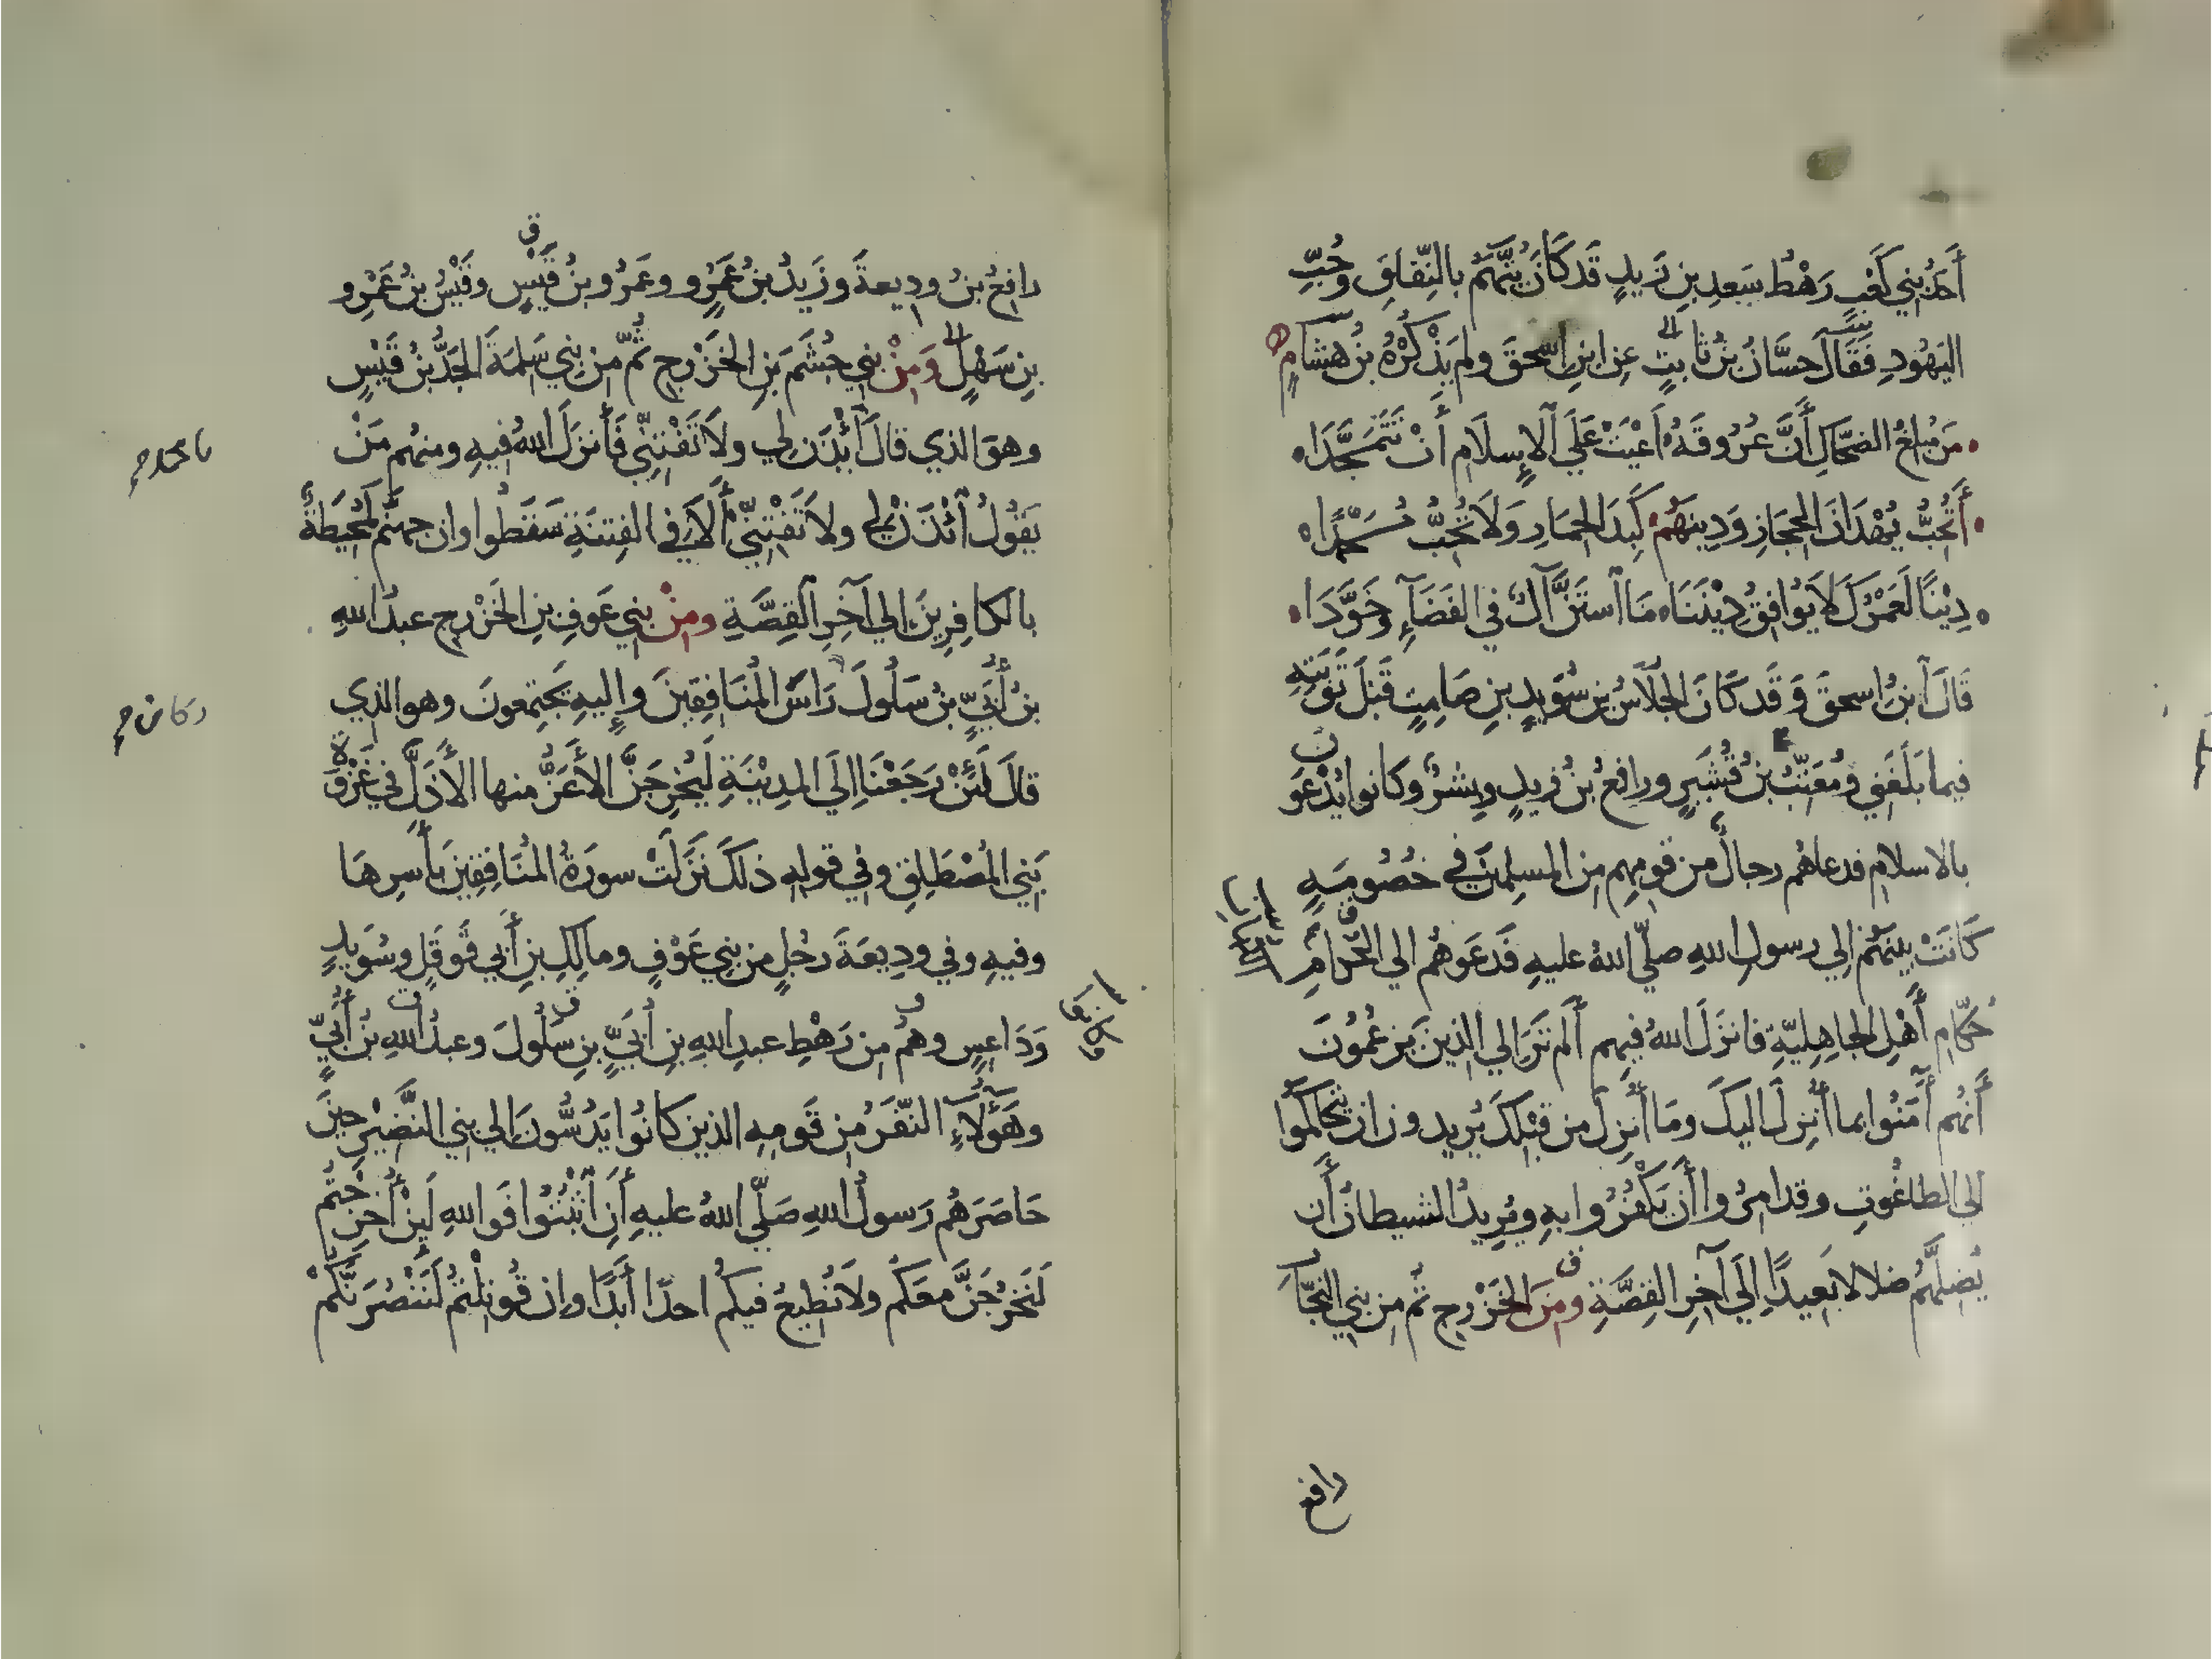 أَحَدُ بَنِي كَعْبٍ رَهْطُ سَعدِ بنِ زَيدٍ قَد كَانَ يُتَّهَمُ بالنِّفَاقِ وَحُبِّ
اليَهُودِ فَقَالَ حسَّانُ بنُ ثابتٍ عن ابنِ اسحقَ ولم يَذْكُرْهُ بنُ هشامٍ
مَن مُبلغُ الضحّاكِ أَنَّ عُرُوقَهُ أَعْيَتْ عَلَى الإِسلَامِ أَنْ تَتَمَجَّدَا
أَتُحِبُّ يُهْدَانَ الحِجَازِ وَدِينَهُمْ كَبِدَ الحمَارِ وَلَا تُحِبُّ مُحَمَّدًا
دِيْنًا لَعَمْرُكَ لَا يُوَافِقُ دِيْنَنَا مَا اسْتَنَّ آلٌ في الفَضَآءِ وَخَوَّدَا
قَالَ ابنُ اسحقَ وَقَد كَانَ الجلَاسُ بن سُوَيدِ بنِ صَامِتٍ قَبْلَ تَوْبَتِهِ
فيما بَلَغَنِي وَمُعَتِّبُ بنُ قُشَيرٍ ورافعُ بنُ زيدٍ وبِشْرٌ وكانوا يُدْعَوْنَ
بالاسلامِ فدعاهُم رجالٌ من قومِهِم مِن المسلِمينَ في خُصُومَةٍ
كَانَتْ بينَهُم إلي رسولِ اللهِ صلّي اللهُ عليهِ فَدَعَوهُم الي الحُكّامِ
حُكّامِ أَهْلِ الجاهِليّةِ فانزَلَ اللهُ فِيهِم أَلَم تَرَ الي الذينَ يَزعُمُونَ
أَنّهُم آمَنُوا بما أُنزِلَ اليكَ ومَا أُنزِلَ من قَبْلِكَ يُرِيدونَ ان يَتَحَاكَمُوا
الي الطاغُوتِ وقد امِرُوا أَن يَكْفُرُوا بهِ ويُرِيدُ الشيطانُ أَن
يُضِلَّهُم ضلالا بَعِيدًا إِلَي آخِرِ القِصَّةِ ومِنَ الخَزْرجِ ثم مِن بني النجّا
رافع
رافعُ بنُ وديعةَ وزَيدُ بنُ عَمْرٍو وعَمْرُو بنُ قَيْسٍ وقَيْسُ بنُ عَمْرِو
بنِ سَهْلٍ وَمِنْ بني جُشَمَ بنِ الخَزْرجِ ثُمّ مِن بني سَلِمَةَ الجَدُّ بنُ قَيْسٍ
وهوَ الذي قالَ ائْذَن لِي ولَا تَفْتِنِّي فَأنزَلَ اللهُ فيهِ ومنهُم مَنْ
يَقُولُ ائْذَنْ لِي ولَا تَفْتِنِّي أَلَا في الفِتنَةِ سَقَطُوا وان جهنّم لَمُحِيطَةٌ
بالكافِرِينَ الي آخِرِ القِصَّةِ ومِنْ بني عَوفِ بنِ الخَزْرجِ عبدُ اللهِ
بنُ أُبَيِّ بنُ سَلُولَ رَاسُ المُنَافِقِينَ وإِليهِ يَجتَمِعونَ وهو الذي
قالَ لَئِنْ رَجَعْنَا إلَي المدِيْنَةِ لَيُخرِجَنَّ الأَعَزُّ منها الأَذَلَّ في غَزْوَةِ
بَنِي المُصْطَلِقِ وفي قولِهِ ذلكَ نَزَلَتْ سورَةُ المُنَافِقِينَ بأَسرِهَا
وفيهِ وفي ودِيعَةَ رجُلٍ من بني عَوْفٍ ومالِكِ بنِ أَبي قَوقَلٍ وسُوَيدٍ
وَدَاعِسٍ وهُم مِن رَهْطِ عبدِ اللهِ بنِ أُبَيِّ بنِ سَلُولَ وعبدُ اللهِ بنُ أُبَيٍّ
وهَؤُلَاءِ النّفَرُ مِن قَومِهِ الذين كانُوا يَدُسُّونَ إلي بني النَّضِيرِ حينَ
حَاصَرَهُم رَسولُ اللهِ صَلّي اللهُ عليهِ أَنِ اثْبُتُوا فَواللهِ لَئِنْ أُخرِجتُم
لَنَخرُجَنَّ معَكُم ولَا نُطِيعُ فيكُم احدًا أَبَدًا وان قُوتِلتُم لَنَنْصُرَنَّكُمْ